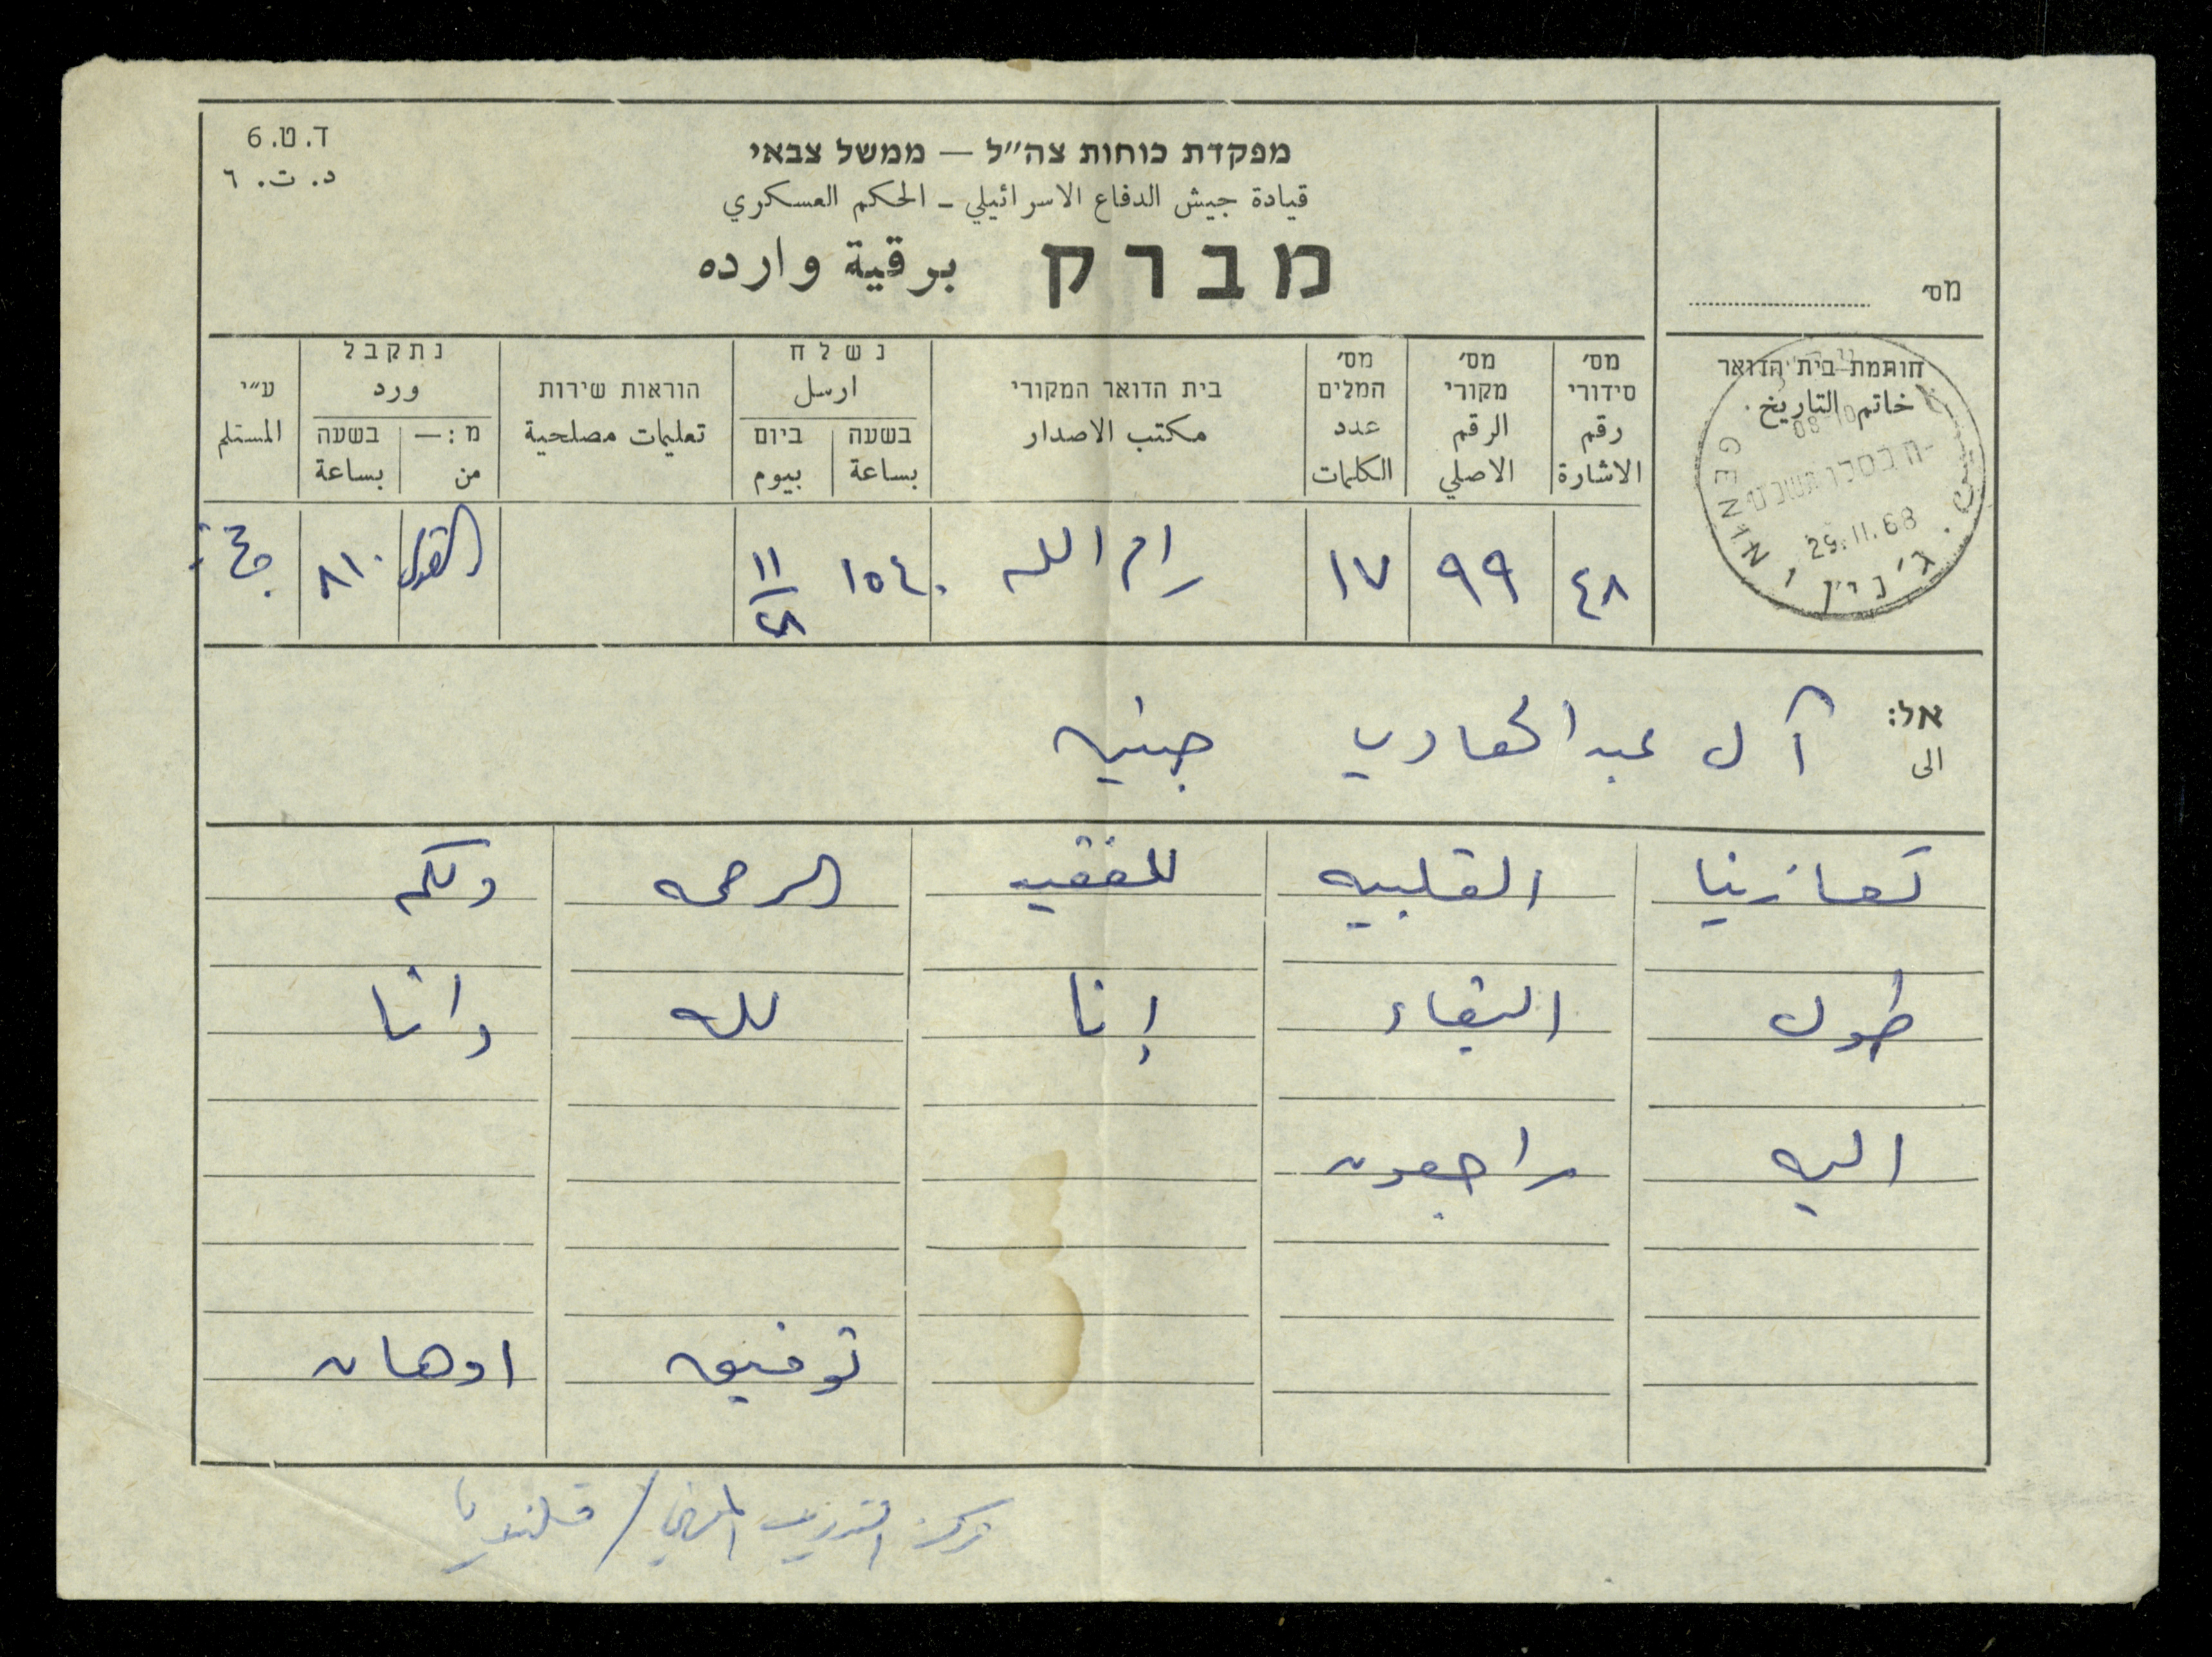 ד. ט. 6
د. ت. ٦
מפקדת כוחות צה״ל — ממשל צבאי
قيادة جيش الدفاع الاسرائيلي ـ الحكم العسكري
מברק برقية وارده
מס׳
חותמת בית הדואר
خاتم التاريخ
08-10
29.11.68
ג׳נין
GENIN
מס׳ סידורי
رقم الاشارة
מס׳ מקורי
الرقم الاصلي
מס׳ המלים
عدد الكلمات
בית הדואר המקורי
مكتب الاصدار
נשלח
ارسل
בשעה
بساعة
ביום
بيوم
הוראות שירות
تعليمات مصلحية
נתקבל
ورد
מ: —
من
בשעה
بساعة
ע״י
المستلم
٤٨ ٩٩ ١٧ رام الله ١٥٤٠ ١١/٢٨ ٨١٠
אל:
الى
آل عبد الهادي جنين
تعازينا القلبيه للفقيد الرحمه ولكم
طول البقاء إنا لله وانا
اليه راجعون
توفيق
مركز التدريب المهني / قلنديا